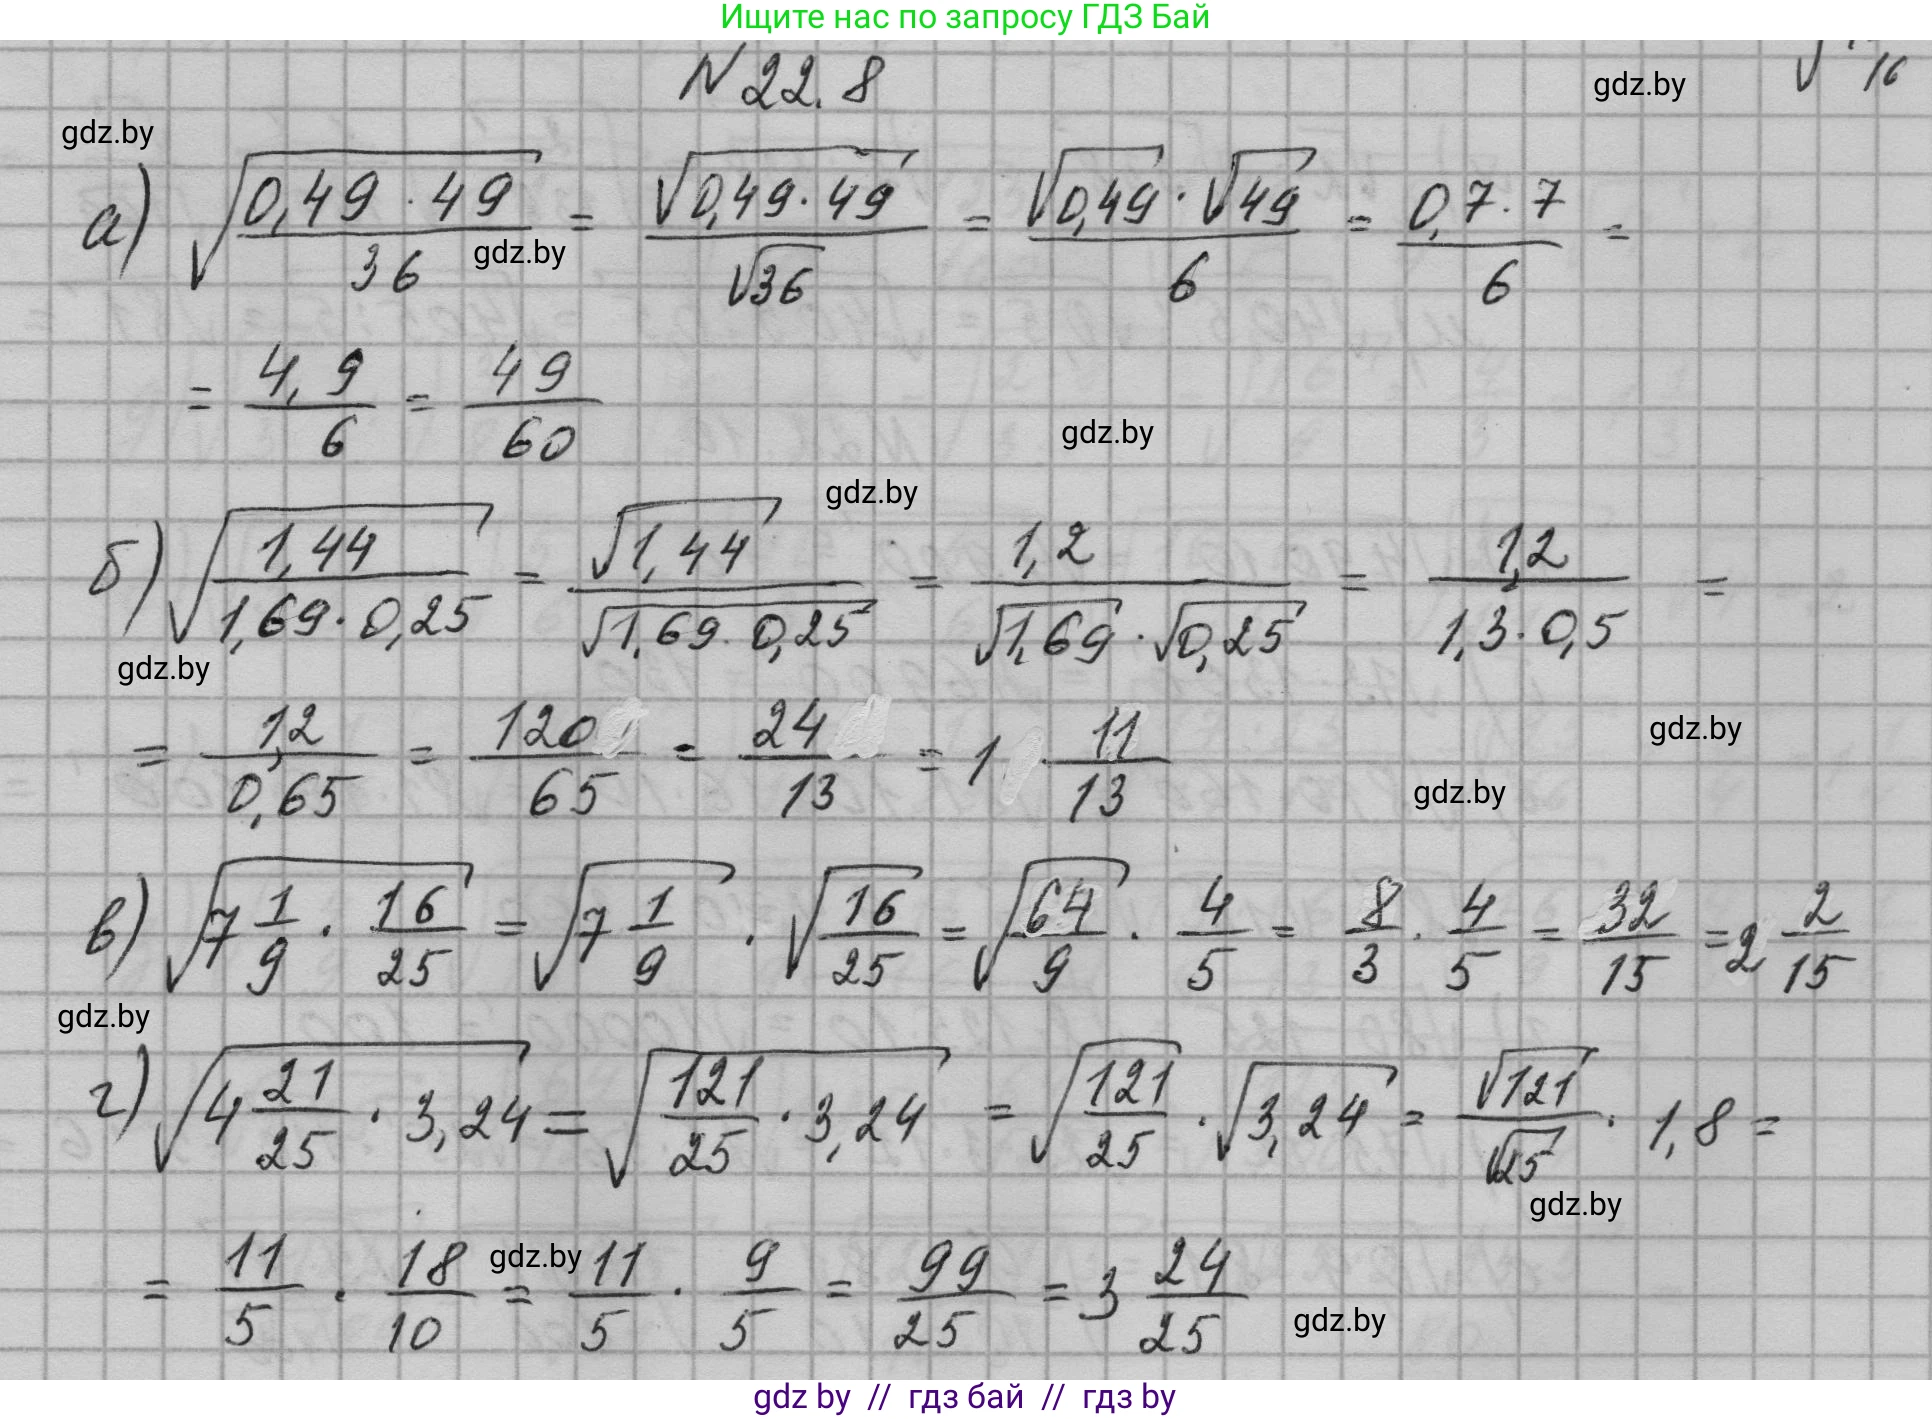 Ищите нас по запросу ГДЗ Бай
N 22.8
gdz.by
√ 16
gdz.by
а) √(0,49 · 49 / 36) = √(0,49 · 49) / √36 = √0,49 · √49 / 6 = 0,7 · 7 / 6 =
gdz.by
= 4,9 / 6 = 49 / 60
gdz.by
gdz.by
б) √(1,44 / (1,69 · 0,25)) = √1,44 / √(1,69 · 0,25) = 1,2 / (√1,69 · √0,25) = 1,2 / (1,3 · 0,5) =
gdz.by
= 1,2 / 0,65 = 120 / 65 = 24 / 13 = 1 11/13
gdz.by
gdz.by
в) √(7 1/9 · 16/25) = √(7 1/9) · √(16/25) = √(64/9) · 4/5 = 8/3 · 4/5 = 32/15 = 2 2/15
gdz.by
г) √(4 21/25 · 3,24) = √(121/25 · 3,24) = √(121/25) · √3,24 = √121 / √25 · 1,8 =
gdz.by
= 11/5 · 18/10 = 11/5 · 9/5 = 99/25 = 3 24/25
gdz.by
gdz.by
gdz by // гдз бай // гдз by